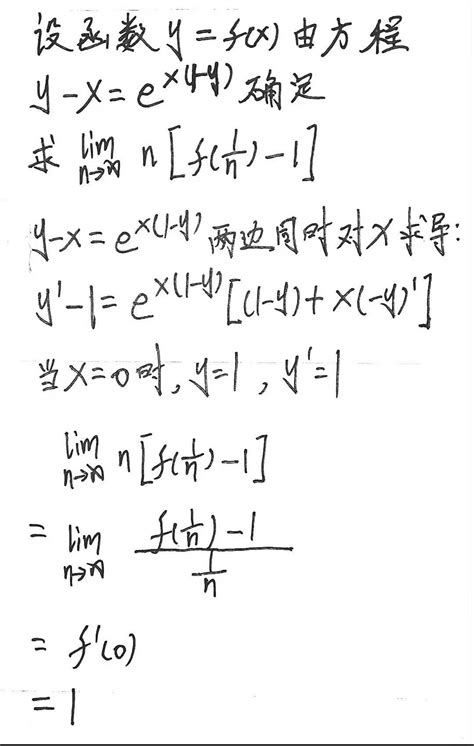 设函数 y = f(x) 由方程
y - x = e^{x(1-y)} 确定
求 lim_{n→∞} n [ f(1/n) - 1 ]
y - x = e^{x(1-y)} 两边同时对 x 求导:
y' - 1 = e^{x(1-y)} [(1-y) + x(-y)']
当 x = 0 时, y = 1, y' = 1
lim_{n→∞} n [ f(1/n) - 1 ]
= lim_{n→∞} \frac{f(1/n) - 1}{\frac{1}{n}}
= f'(0)
= 1